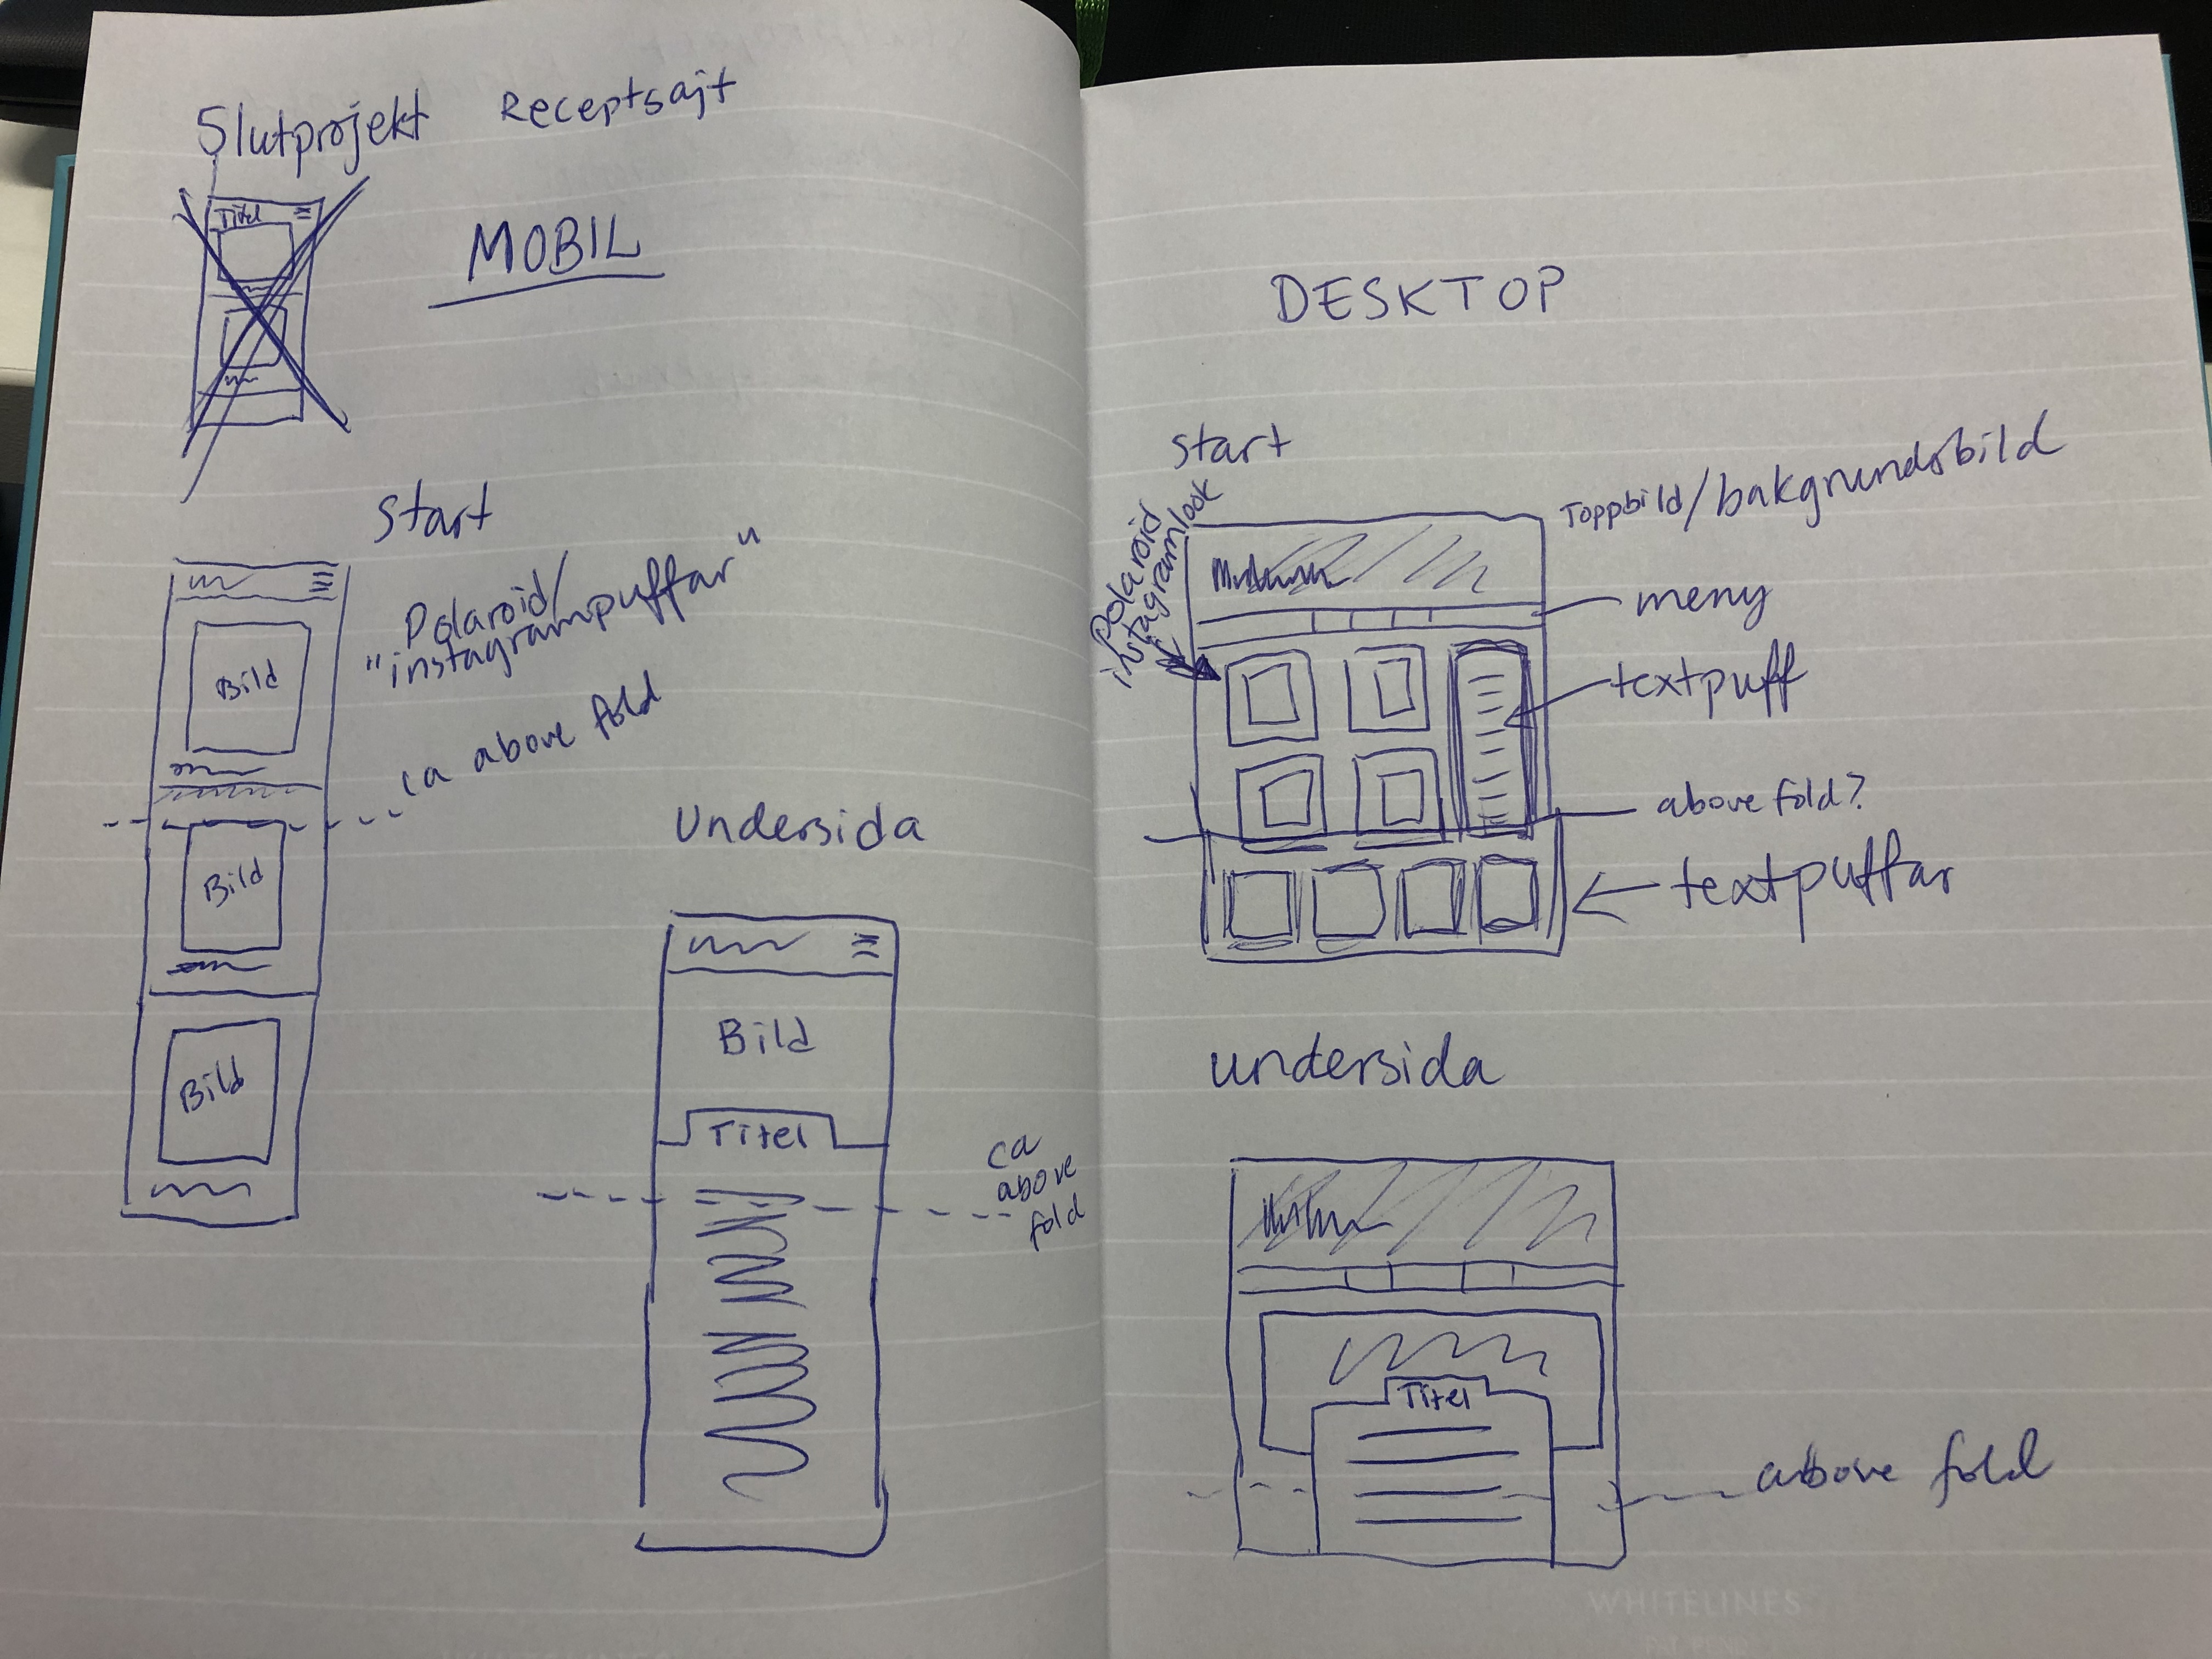 Slutprojekt Receptsajt
Titel
MOBIL
Start
Polaroid/
"instagrampuffar"
Bild
ca above fold
Bild
Bild
Undersida
Bild
Titel
ca
above
fold
DESKTOP
Start
Toppbild/bakgrundsbild
Polaroid
instagramlook
meny
textpuff
above fold?
textpuffar
undersida
Titel
above fold
WHITELINES